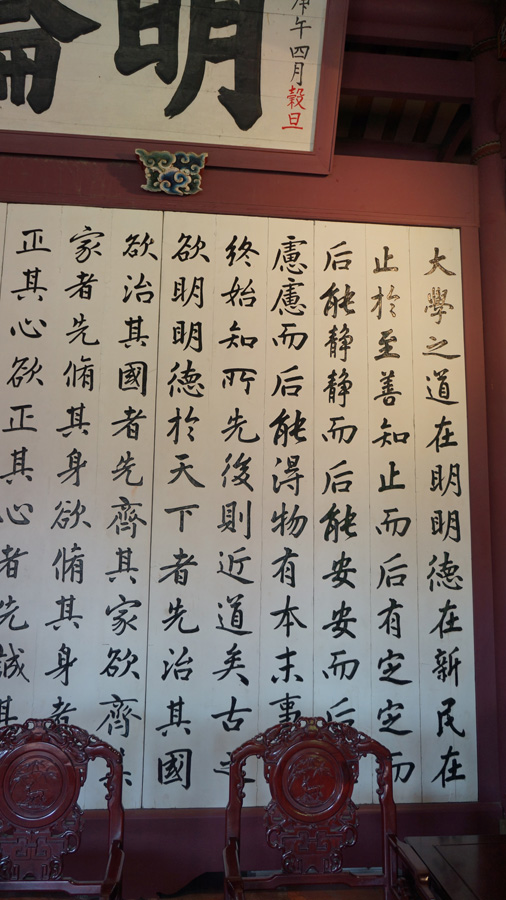 明倫
庚午四月穀旦
大學之道在明明德在新民在
止於至善知止而后有定定而
后能静静而后能安安而后
慮慮而后能得物有本末事
終始知所先後則近道矣古之
欲明明德於天下者先治其國
欲治其國者先齊其家欲齊其
家者先脩其身欲脩其身者
正其心欲正其心者先誠其